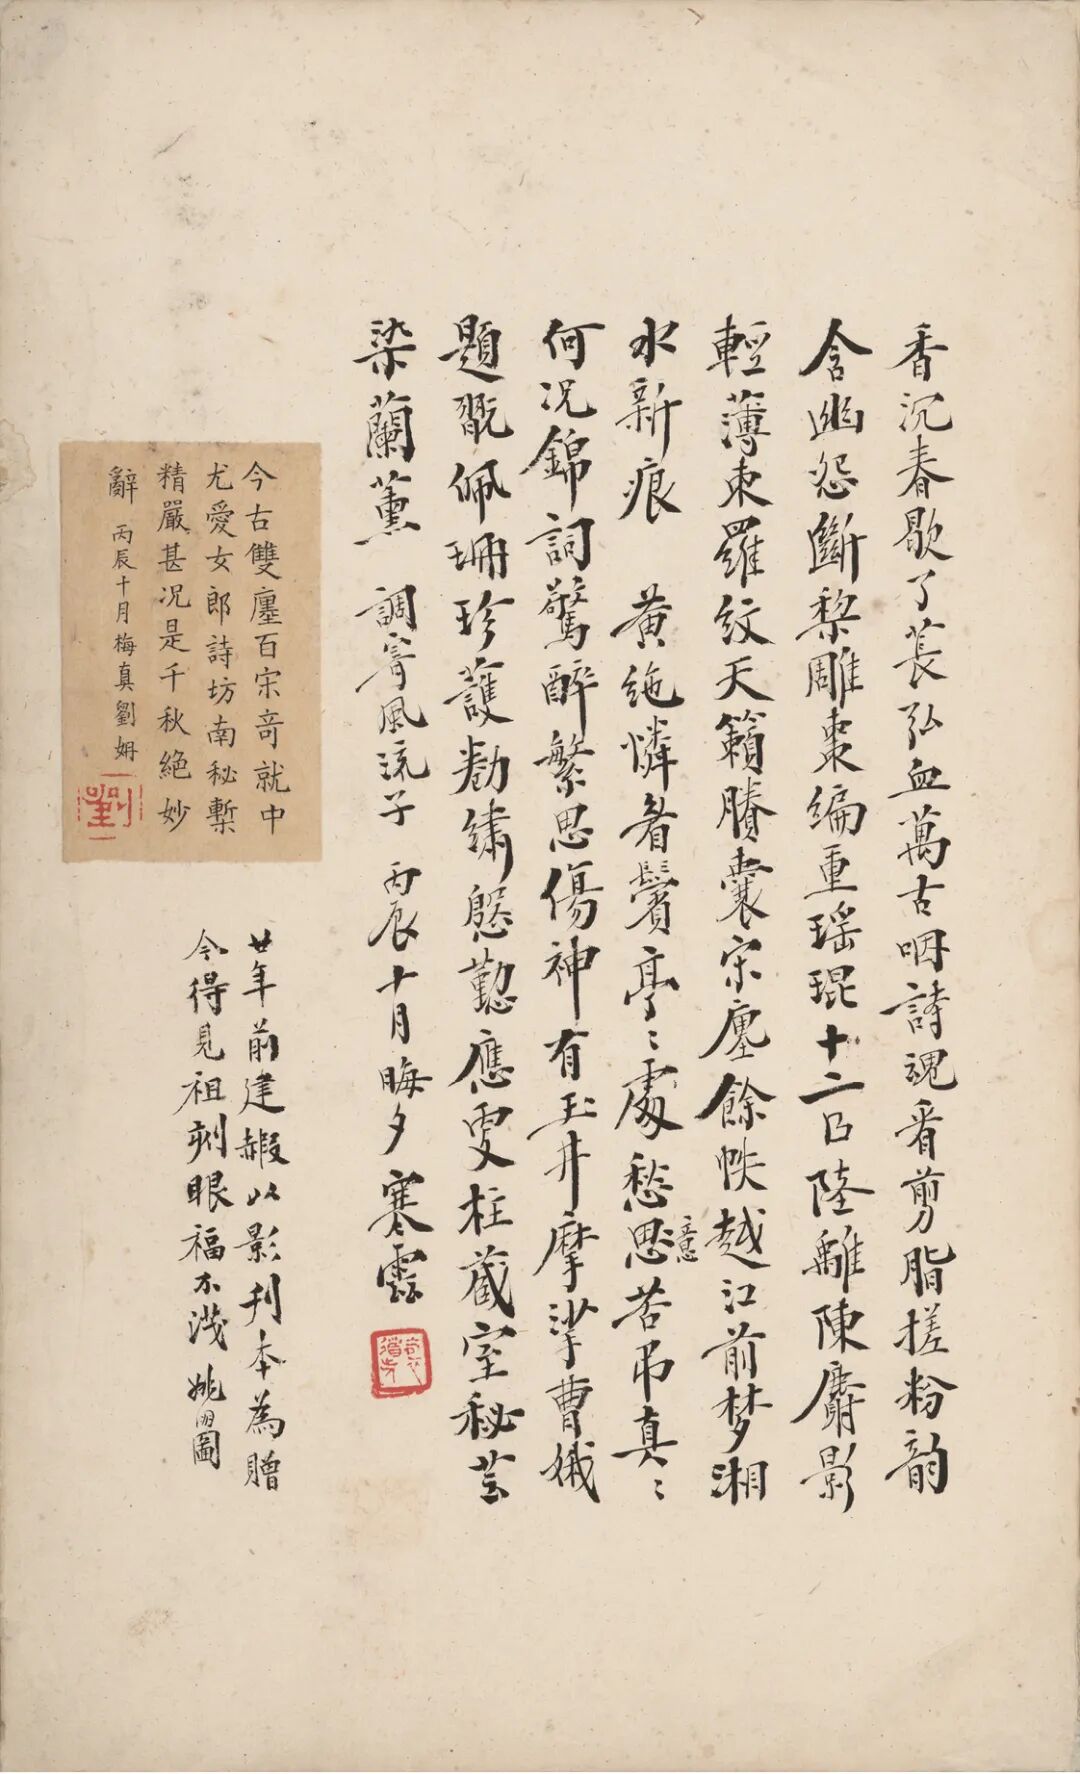 香沉春歇了萇弘血萬古咽詩魂看剪脂搓粉韵
含幽怨斷梨雕棗編重瑤琨十二㔾陸離陳麝影
輕薄束羅紋天籟賸囊宋廛餘帙越江前梦湘
水新痕 黃絁憐着鬢亭〻處愁思意苦弔真〻
何況錦詞驚醉繁思傷神有玉井摩挲曹娥
題翫佩珊珍護勘繡慇懃應叓柱蔵室秘芸
染蘭薰 調寄風流子 丙辰十月晦夕 寒雲
今古雙廛百宋竒就中
尤愛女郎詩坊南秘槧
精嚴甚況是千秋絕妙
辭 丙辰十月梅真劉姌
劉
廿年前建嘏以影刊本為贈
今得見祖刻眼福不淺 姚